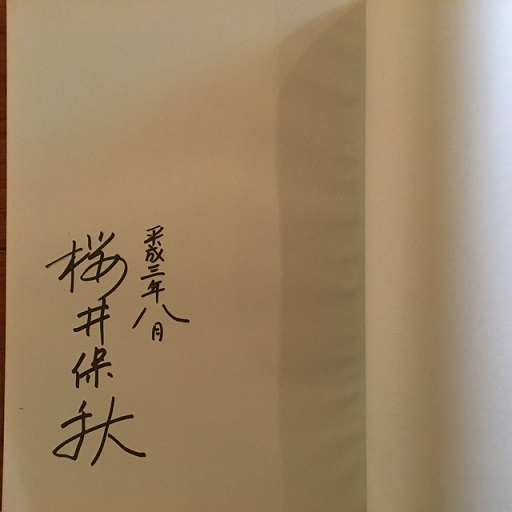 平成三年八月
桜井保秋